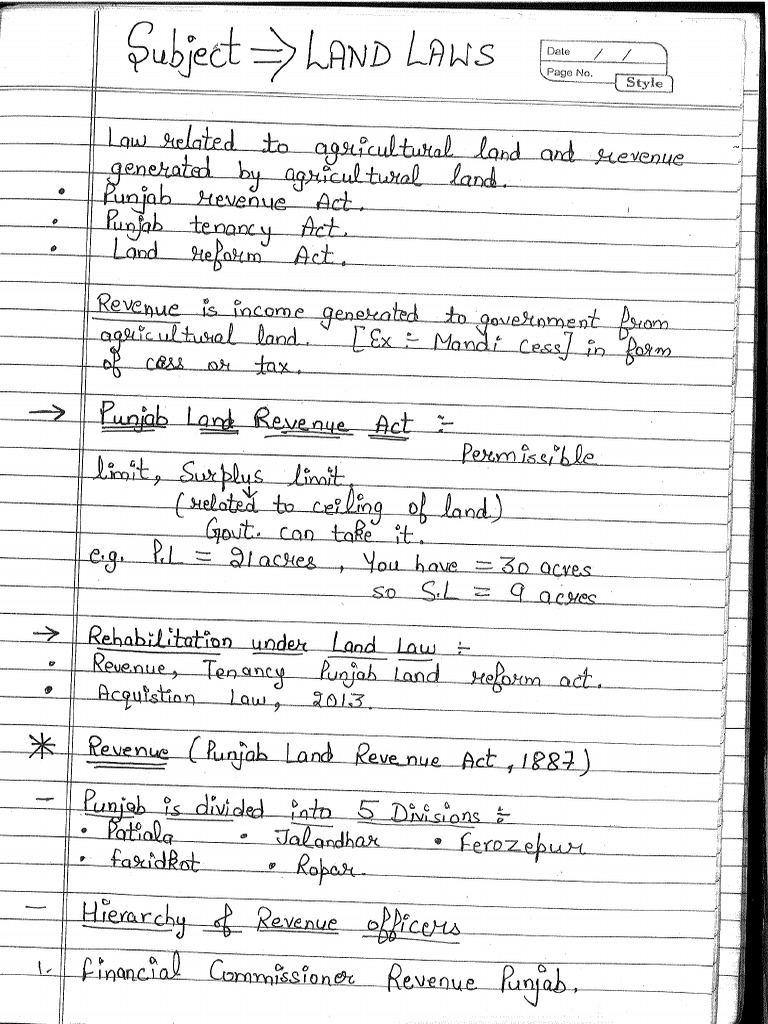 Subject ⇒ LAND LAWS
Date / /
Page No.
Style
Law related to agricultural land and revenue
generated by agricultural land.
• Punjab revenue Act.
• Punjab tenancy Act.
• Land reform Act.
Revenue is income generated to government from
agricultural land. [Ex :- Mandi Cess] in form
of cess or tax.
→ Punjab Land Revenue Act :-
Permissible
limit, Surplus limit.
(related to ceiling of land)
Govt. can take it.
e.g. P.L = 21 acres, You have = 30 acres
so S.L = 9 acres
→ Rehabilitation under Land Law :-
• Revenue, Tenancy Punjab Land reform act.
• Acquistion Law, 2013.
* Revenue (Punjab Land Revenue Act, 1887)
- Punjab is divided into 5 Divisions :-
• Patiala • Jalandhar • Ferozepur
• faridkot • Ropar.
- Hierarchy of Revenue officers
1. financial Commissioner Revenue Punjab.